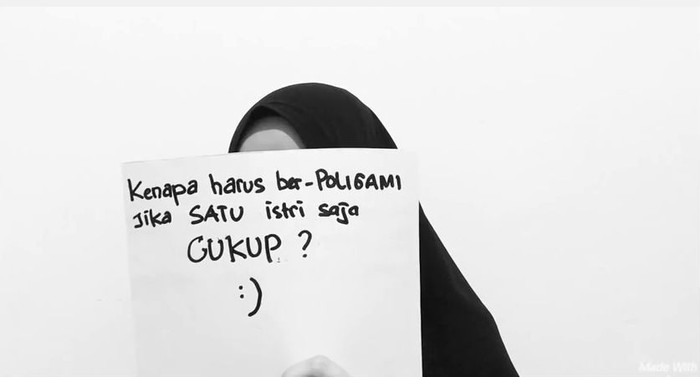 Kenapa harus ber-POLIGAMI
Jika SATU istri saja
CUKUP ?
:)
Made With